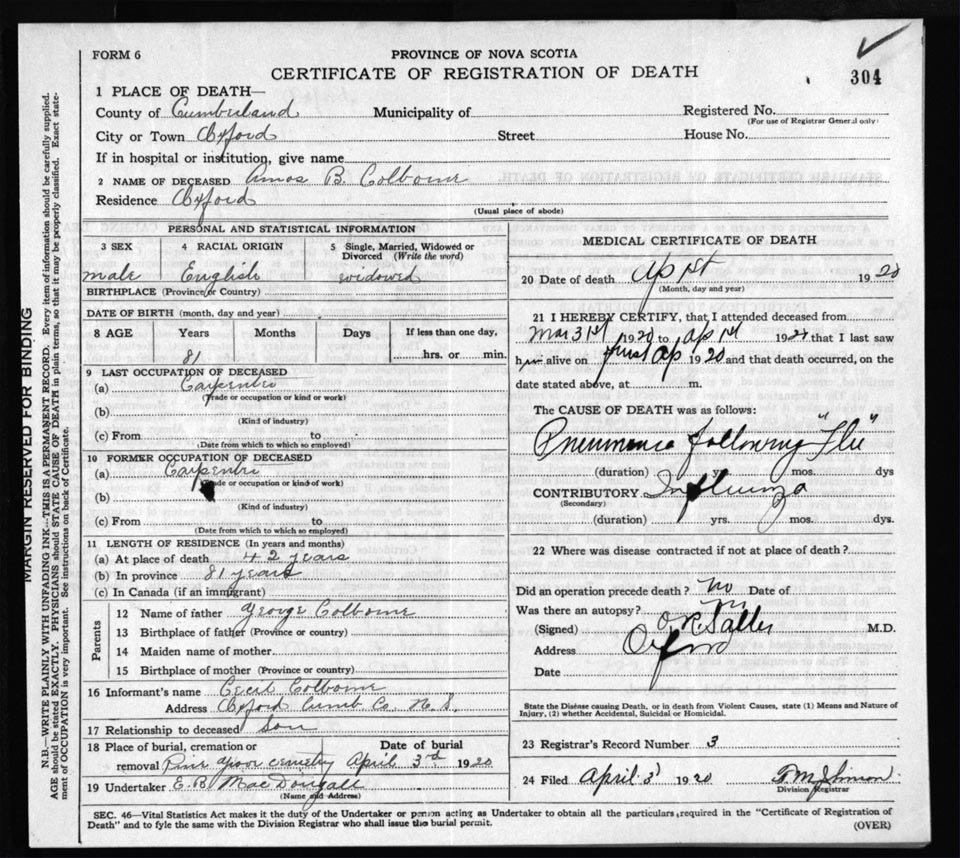 FORM 6
PROVINCE OF NOVA SCOTIA
CERTIFICATE OF REGISTRATION OF DEATH
304
1 PLACE OF DEATH—
County of Cumberland Municipality of Registered No.
(For use of Registrar General only)
City or Town Oxford Street House No.
If in hospital or institution, give name
2 NAME OF DECEASED Amos B. Colborne
Residence Oxford
(Usual place of abode)
PERSONAL AND STATISTICAL INFORMATION
3 SEX 4 RACIAL ORIGIN 5 Single, Married, Widowed or Divorced (Write the word)
male English widowed
BIRTHPLACE (Province or Country)
DATE OF BIRTH (month, day and year)
8 AGE Years Months Days If less than one day,
81 hrs. or min.
9 LAST OCCUPATION OF DECEASED
(a) Carpenter
(Trade or occupation or kind or work)
(b)
(Kind of industry)
(c) From to
(Date from which to which so employed)
10 FORMER OCCUPATION OF DECEASED
(a) Carpenter
(Trade or occupation or kind of work)
(b)
(Kind of industry)
(c) From to
(Date from which to which so employed)
11 LENGTH OF RESIDENCE (In years and months)
(a) At place of death 42 years
(b) In province 81 years
(c) In Canada (if an immigrant)
Parents
12 Name of father George Colborne
13 Birthplace of father (Province or country)
14 Maiden name of mother
15 Birthplace of mother (Province or country)
16 Informant's name Cecil Colborne
Address Oxford Cumb Co. N. S.
17 Relationship to deceased Son
18 Place of burial, cremation or Date of burial
removal Pine Grove cemetry April 3rd 1920
19 Undertaker E. B. MacDougall
(Name and Address)
MEDICAL CERTIFICATE OF DEATH
20 Date of death Ap 1st 1920
(Month, day and year)
21 I HEREBY CERTIFY, that I attended deceased from
Mar 31st 1920 to Ap 1st 192 that I last saw
him alive on first Ap 1920 and that death occurred, on the
date stated above, at m.
The CAUSE OF DEATH was as follows:
Pneumonia following "Flu"
(duration) yrs. mos. dys
CONTRIBUTORY Influenza
(Secondary)
(duration) yrs. mos. dys.
22 Where was disease contracted if not at place of death?
Did an operation precede death? No Date of
Was there an autopsy? No
(Signed) M.D.
Address Oxford
Date
State the Disease causing Death, or in death from Violent Causes, state (1) Means and Nature of
Injury, (2) whether Accidental, Suicidal or Homicidal.
23 Registrar's Record Number 3
24 Filed April 3 1920 T. M. Johnson
Division Registrar
SEC. 46—Vital Statistics Act makes it the duty of the Undertaker or person acting as Undertaker to obtain all the particulars required in the "Certificate of Registration of
Death" and to fyle the same with the Division Registrar who shall issue the burial permit.
(OVER)
MARGIN RESERVED FOR BINDING
N.B.—WRITE PLAINLY WITH UNFADING INK—THIS IS A PERMANENT RECORD. Every item of information should be carefully supplied.
AGE should be stated EXACTLY. PHYSICIANS should STATE CAUSE OF DEATH in plain terms, so that it may be properly classified. Exact state-
ment of OCCUPATION is very important. See instructions on back of Certificate.